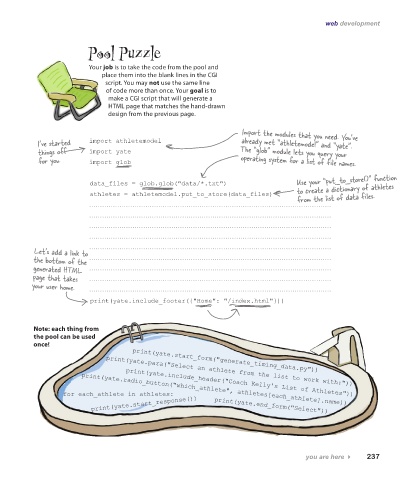 web development
Pool Puzzle
Your job is to take the code from the pool and
place them into the blank lines in the CGI
script. You may not use the same line
of code more than once. Your goal is to
make a CGI script that will generate a
HTML page that matches the hand-drawn
design from the previous page.
Import the modules that you need. You've
already met "athletemodel" and "yate".
The "glob" module lets you query your
operating system for a list of file names.
I've started
things off
for you.
import athletemodel
import yate
import glob
data_files = glob.glob("data/*.txt")
athletes = athletemodel.put_to_store(data_files)
Use your "put_to_store()" function
to create a dictionary of athletes
from the list of data files.
Let's add a link to
the bottom of the
generated HTML
page that takes
your user home.
print(yate.include_footer({"Home": "/index.html"}))
Note: each thing from
the pool can be used
once!
print(yate.start_form("generate_timing_data.py"))
print(yate.para("Select an athlete from the list to work with:"))
print(yate.include_header("Coach Kelly's List of Athletes"))
print(yate.radio_button("which_athlete", athletes[each_athlete].name))
for each_athlete in athletes:
print(yate.end_form("Select"))
print(yate.start_response())
you are here
237